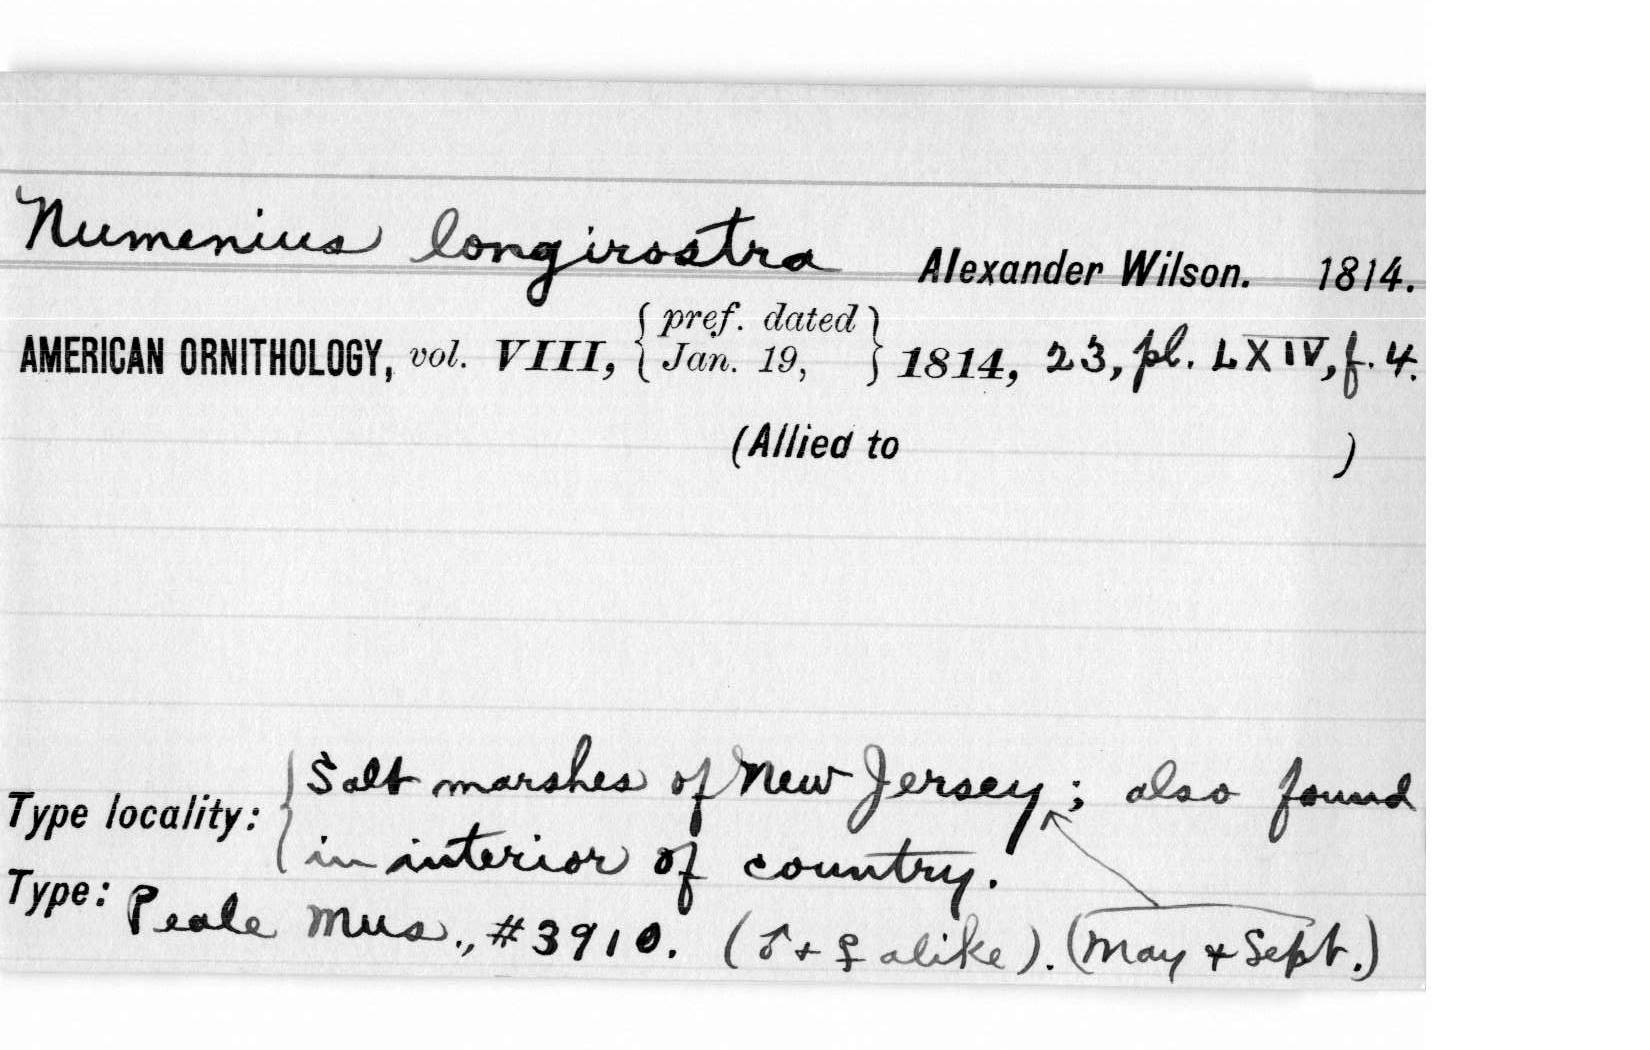 Numenius longirostra Alexander Wilson. 1814.
AMERICAN ORNITHOLOGY, vol. VIII, { pref. dated Jan. 19, } 1814, 23, pl. LXIV, f. 4.
(Allied to )
Type locality: { Salt marshes of New Jersey; also found
in interior of country.
Type: Peale Mus., #3910. (♂ + ♀ alike). (May + Sept.)